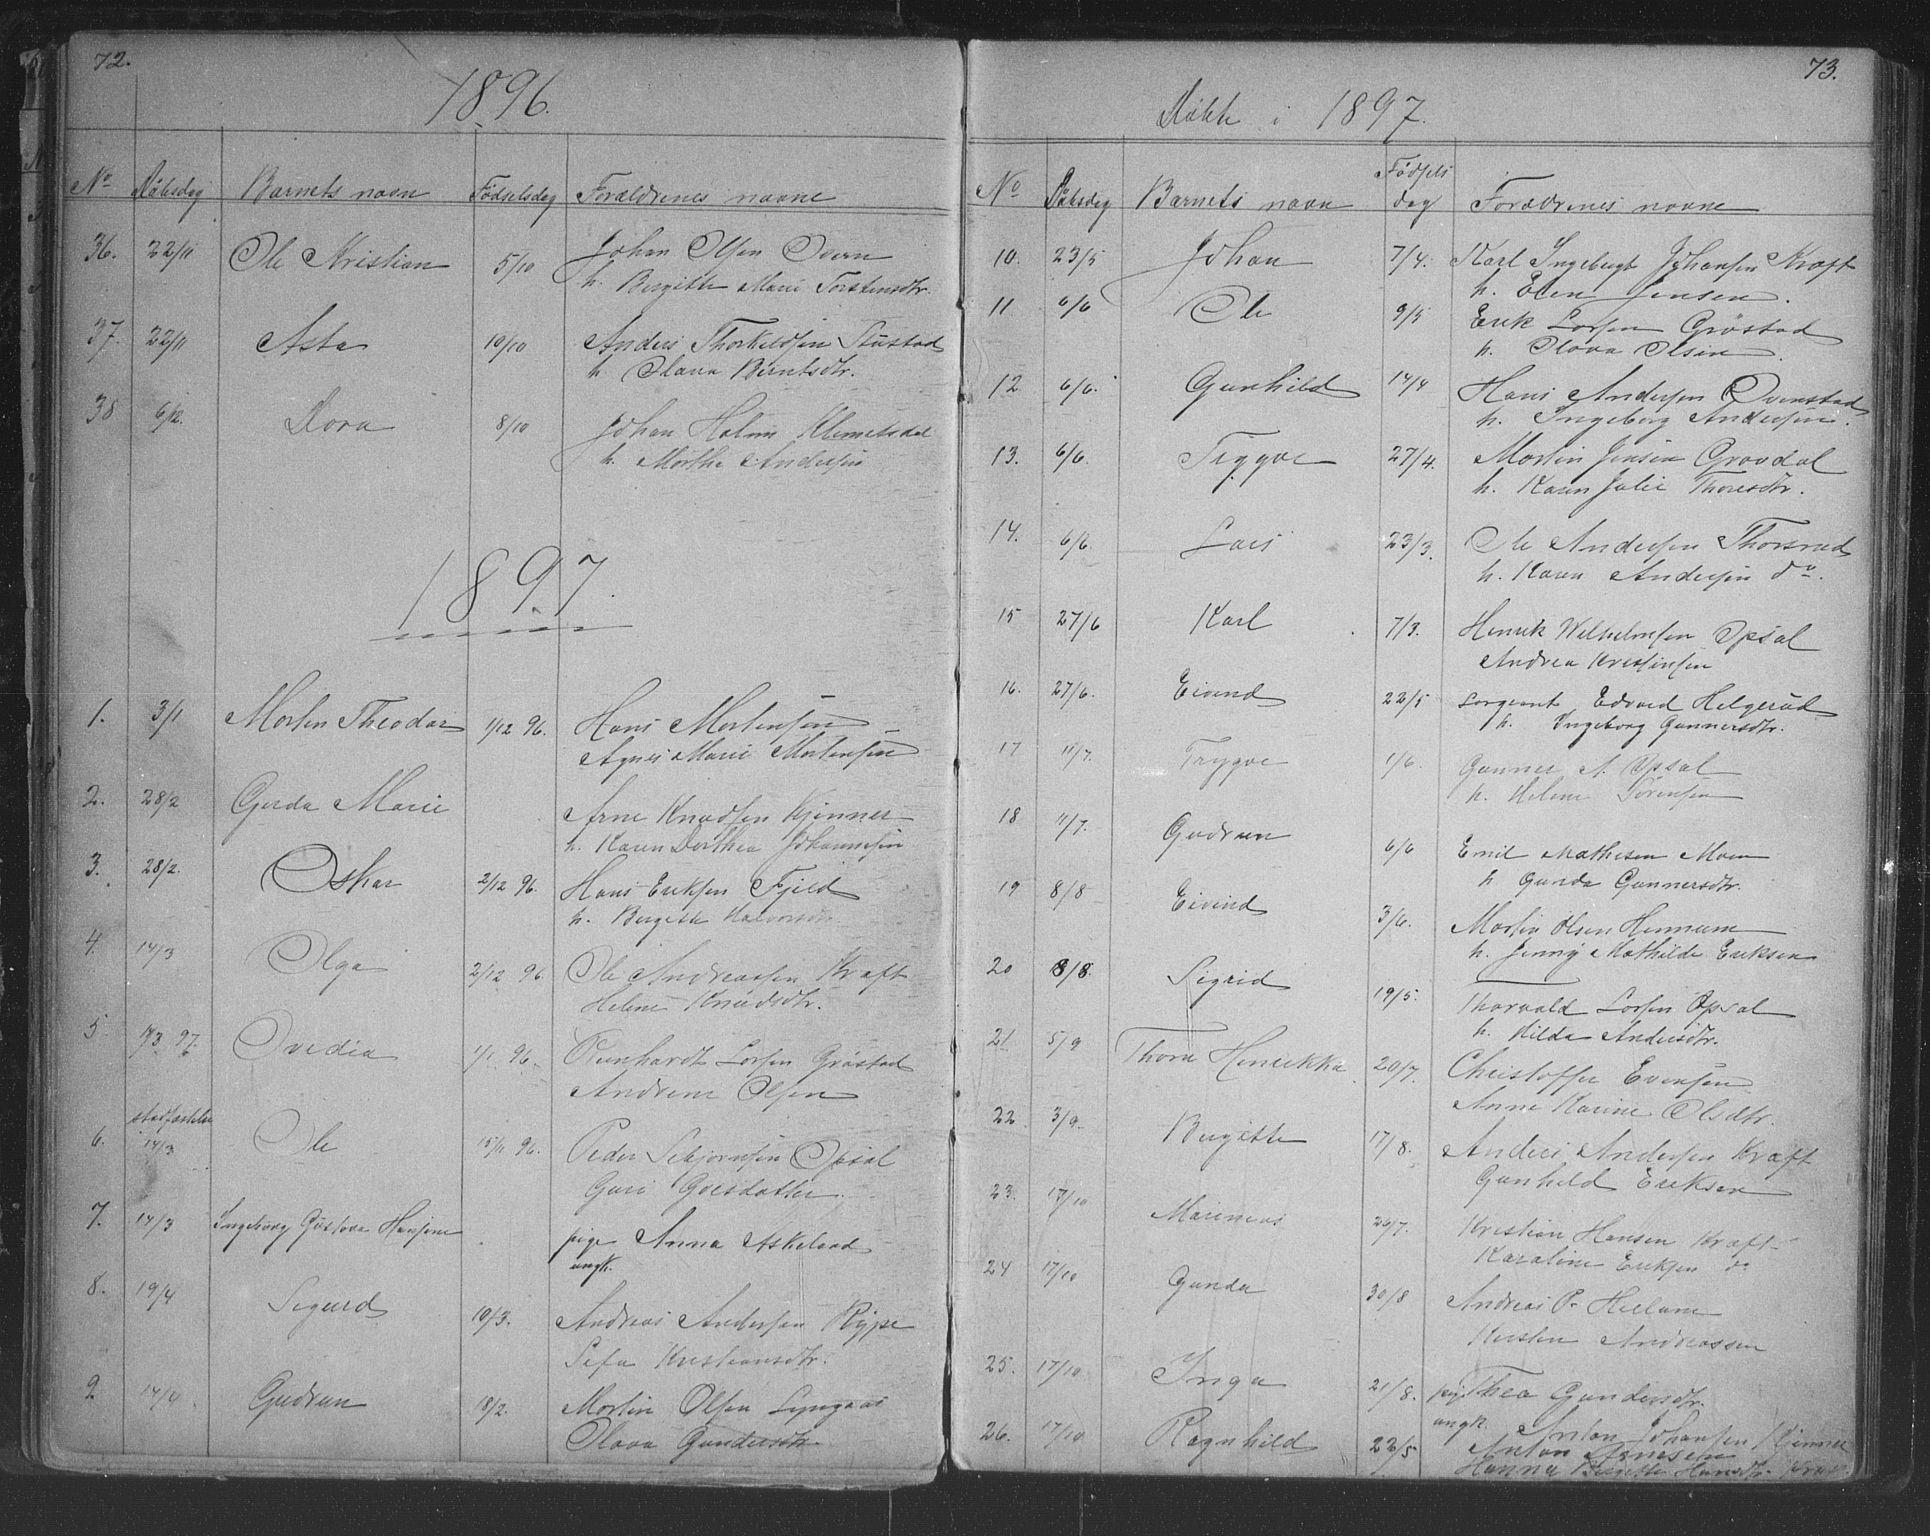 72.
1896.
No Dåbsdag Barnets navn Fødselsdag Forældrenes navne
36. 22/11 Ole Kristian 5/10 Johan Olsen Overn
h. Birgitte Marie Torstensdtr.
37. 22/11 Asta 10/10 Anders Thorkeldsen Tustad
h. Olava Berntsdtr.
38 6/12. Dora 8/10 Johan Holm Klemetsdal
h. Marthe Andersen
1897.
1. 3/1 Morten Theodor 1/12 96. Hans Mortensen
Agnes Marie Mortensen
2. 28/2 Gerda Marie Arne Knudsen Kjinner
h. Karen Dorthea Johannesen
3. 28/2. Oskar 2/12 96. Hans Eriksen Fjeld
h. Birgitte Halvorsdtr
4. 14/3 Olga 2/12 96. Ole Andreassen Kraft
Helene Knudsdtr.
5. 14/3 97. Ovedia 1/1 96. Reinhardt Larsen Grøstad
Andrine Olsen
6. stadfæstelse 14/3 Ole 15/1 96. Peder Sebjørnsen Opsal
Guri Goesdatter.
7. 14/3 Ingeborg Gustava Hansine pige Anna Askeland
ungk.
8. 19/4 Sigurd 10/3. Andreas Andersen Rype
Sefa Kristiansdtr.
9 14/4 Gudrun 18/2. Martin Olsen Lyngaas
Olava Gundersdtr
73.
Døbte i 1897.
No Dåbsdag Barnets navn Fødsels
dag Forældrenes navne
10. 23/5 Johan 7/4. Karl Ingebregt Johansen Kraft
h. Elen Jensen.
11 6/6 Ole 9/5 Erik Larsen Grøstad
h. Olava Olsen.
12 6/6. Gunhild 14/4 Hans Andersen Ovenstad
h. Ingeborg Andersen.
13. 6/6. Tryggve 27/4. Martin Jensen Gravdal
h. Karen Julie Thoresdtr.
14. 6/6. Lars 23/3. Ole Andersen Thorsrud
h. Karen Andersen do.
15 27/6 Karl 7/3. Henrik Wilhelmsen Opsal
Andrea Kristinsen
16. 27/6. Eivind 22/5 sergeant Edvard Helgerud
h. Ingeborg Gunnersdtr.
17 11/7. Trygve 1/6. Gunner A. Opsal
h. Helene Sørensen
18 11/7. Gudrun 6/6 Emil Mathisen Moen
h Gunda Gunnersdtr.
19 8/8 Eivind 3/6. Martin Olsen Hennum
h. Jenny Mathilde Eriksen
20 8/8. Sigrid 19/5. Thorvald Larsen Opsal
h. Hilda Andersdtr.
21. 5/9 Thora Henrikka 20/7. Christoffer Evensen
Anne Karine Olsdtr.
22. 3/9. Birgitte 17/8. Anders Andersen Kraft
Gunhild Eriksen
23. 17/10 Marineus 26/7. Kristian Hansen Kraft
Karoline Eriksen do
24 17/10 Gunda 30/8 Andreas P. Hellum
Kirsten Andreassen
25. 17/10 Inga 21/8. pige Thea Gundersdtr.
ungk. Anton Johansen Kjinner
26. 17/10 Ragnhild 22/5 Anton Arnesen
Hanna Birgitte Hansdtr. Kraft